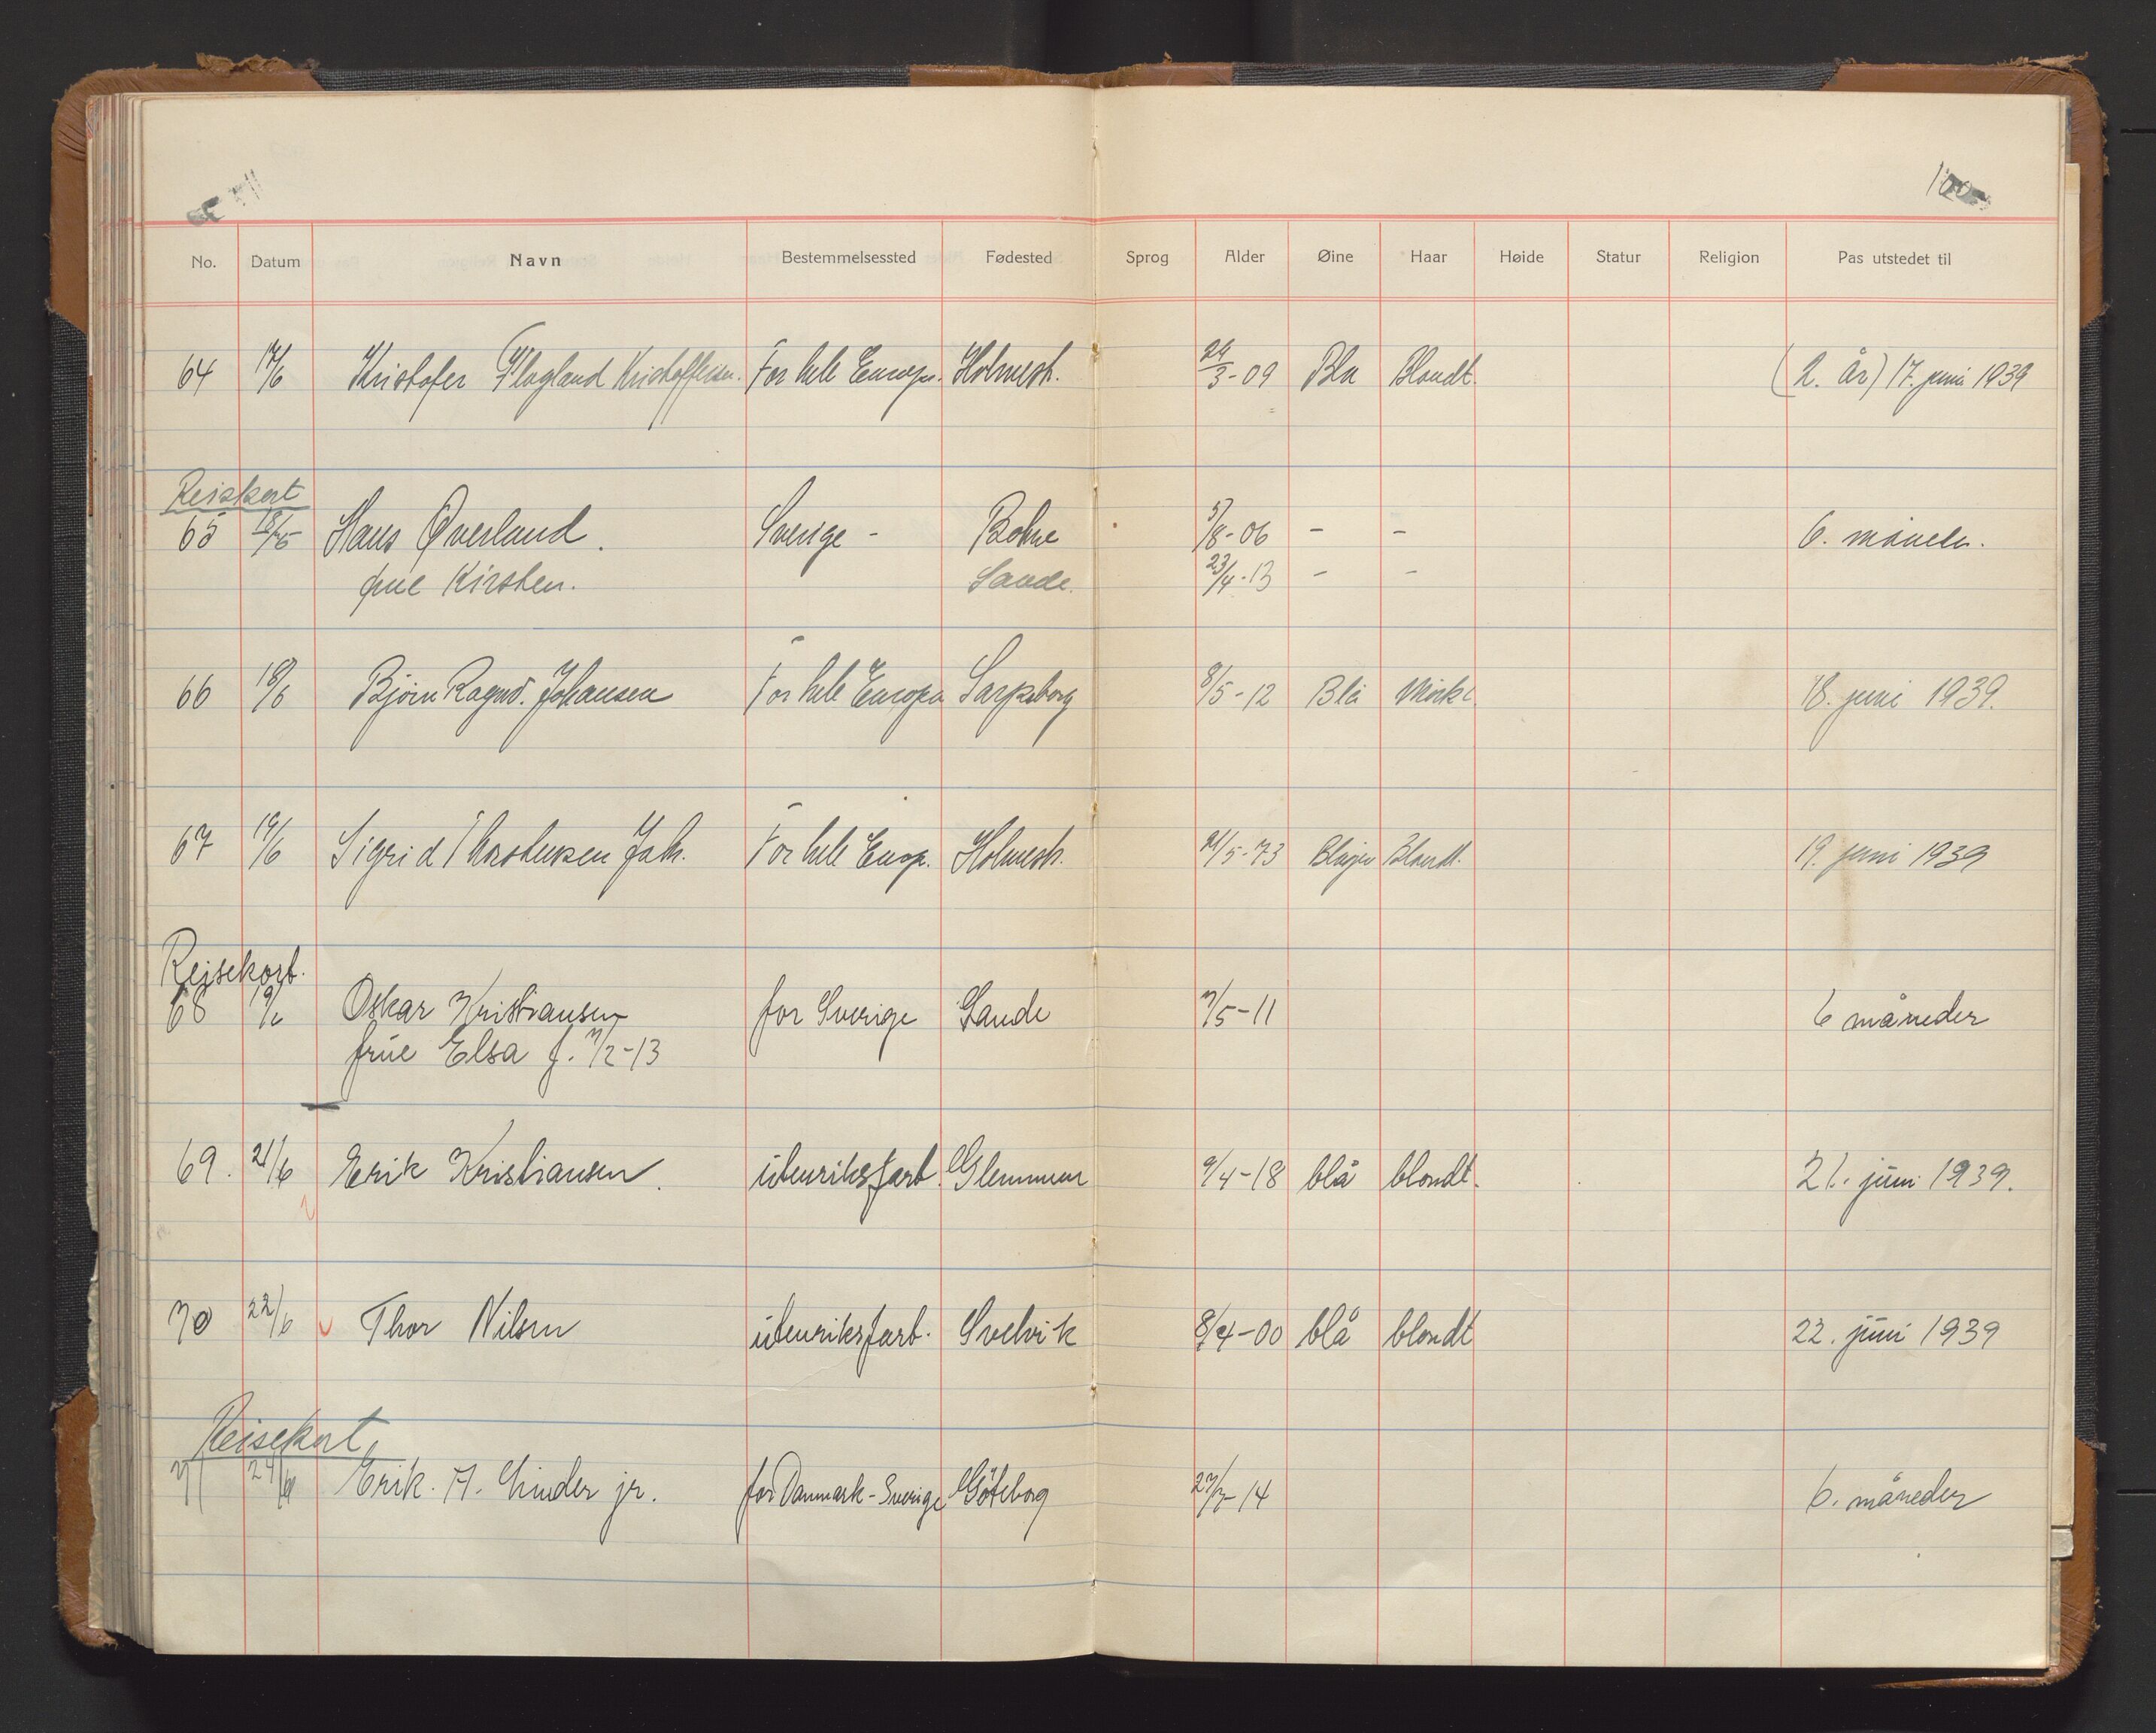 100
No. Datum Navn Bestemmelsessted Fødested Sprog Alder Øine Haar Høide Statur Religion Pas utstedet til
64 17/6 Kristofer Flogland Kristoffersen. For hele Europ. Holmestr. 24/3-09 Bla Blondt. (2. år) 17. juni 1939
Reisekort
65 18/ Hans Øverland. Sverige - Botne 5/8-06 - - 6. måneder.
frue Kirsten. Sande. 23/4-13 - -
66 18/6 Bjørn Ragnv. Johansen For hele Europa Sarpsborg 8/5-12 Blå Mørkt. 18. juni 1939.
67 19/6 Sigrid Thorstensen For hele Europ. Holmestr. 21/5-73 Blondt. 19. juni 1939
Reisekort.
68 19/6 Oskar Kristiansen for Sverige Sande 7/5-11 6 måneder
frue Elsa f. 7/2-13
69. 21/6 Erik Kristiansen. utenriksfart. Glemmen 9/4-18 blå blondt. 21. juni 1939.
70 22/6 Thor Nilsen utenriksfart. Svelvik 8/4-00 blå blondt 22. juni 1939
Reisekort,
71 24/6 Erik. A. jr. for Danmark-Sverige Göteborg 27/7-14 6. måneder